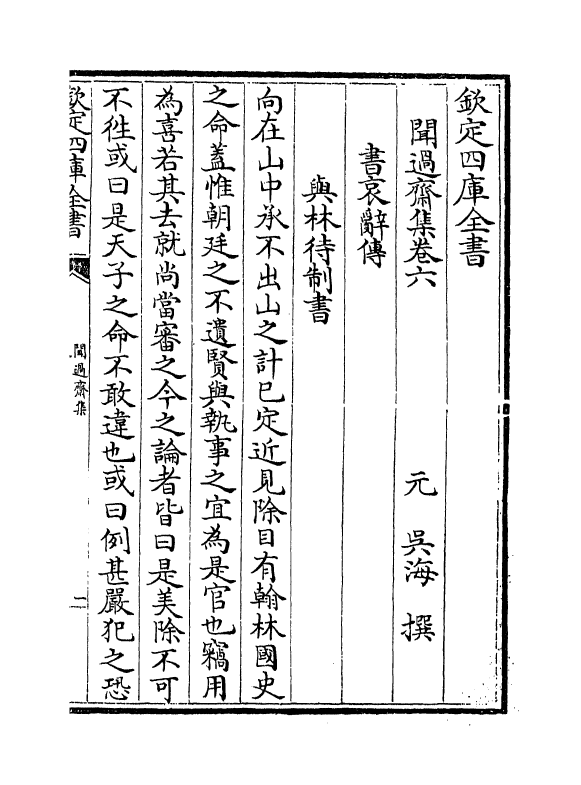 欽定四庫全書
聞過齋集卷六
元 吳海 撰
書哀辭傳
與林待制書
向在山中承不出山之計已定近見除目有翰林國史
之命蓋惟朝廷之不遺賢與執事之宜為是官也竊用
為喜若其去就尚當審之今之論者皆曰是美除不可
不徃或曰是天子之命不敢違也或曰例甚嚴犯之恐
欽定四庫全書
聞過齋集
二